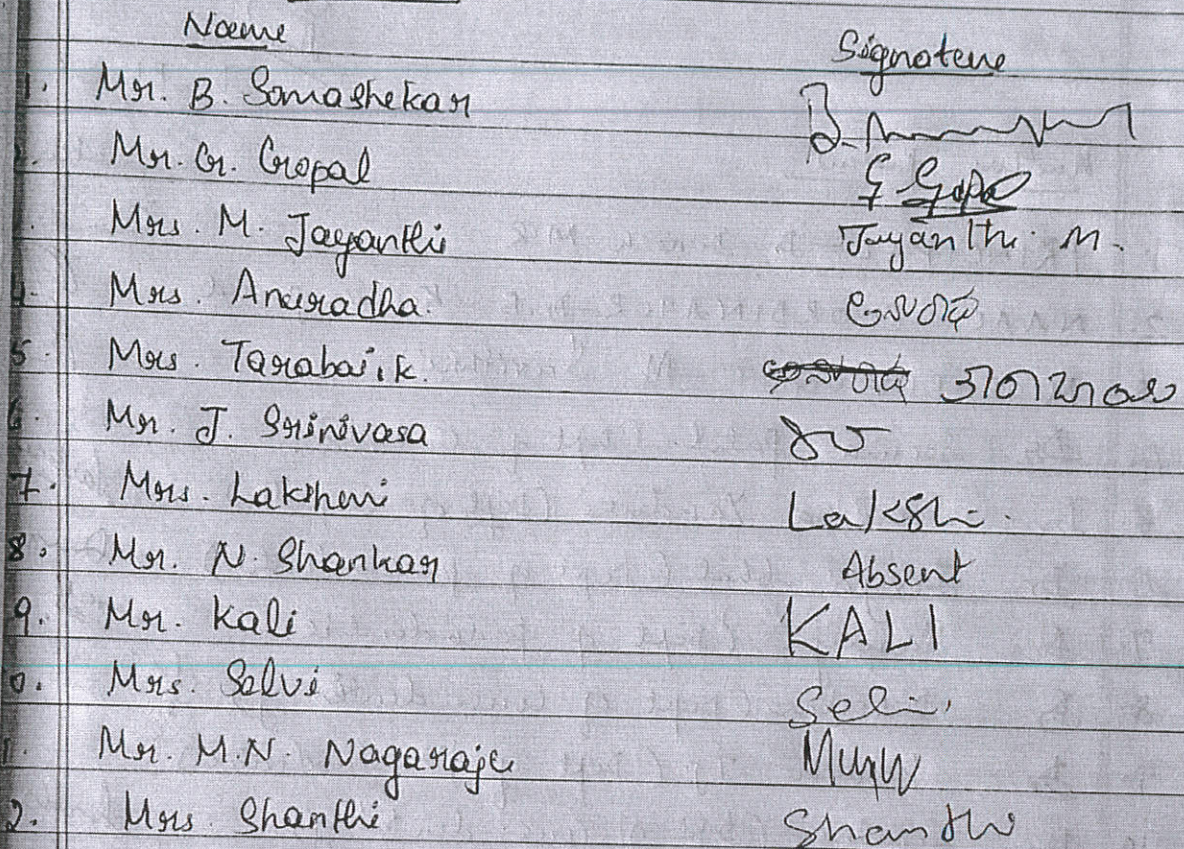 Name Signature
1. Mr. B. Somashekar
2. Mr. G. Gopal G Gopal
Mrs. M. Jayanthi Jayanthi. M.
4. Mrs. Anuradha. ಅನುರಾಧ
5. Mrs. Tarabai.k. ತಾರಾಬಾಯಿ
6. Mr. J. Srinivasa
7. Mrs. Lakshmi Lakshi.
8. Mr. N. Shankar Absent
9. Mr. Kali KALI
0. Mrs. Selvi Selvi.
Mr. M.N. Nagaraju
2. Mrs. Shanthi Shanthi